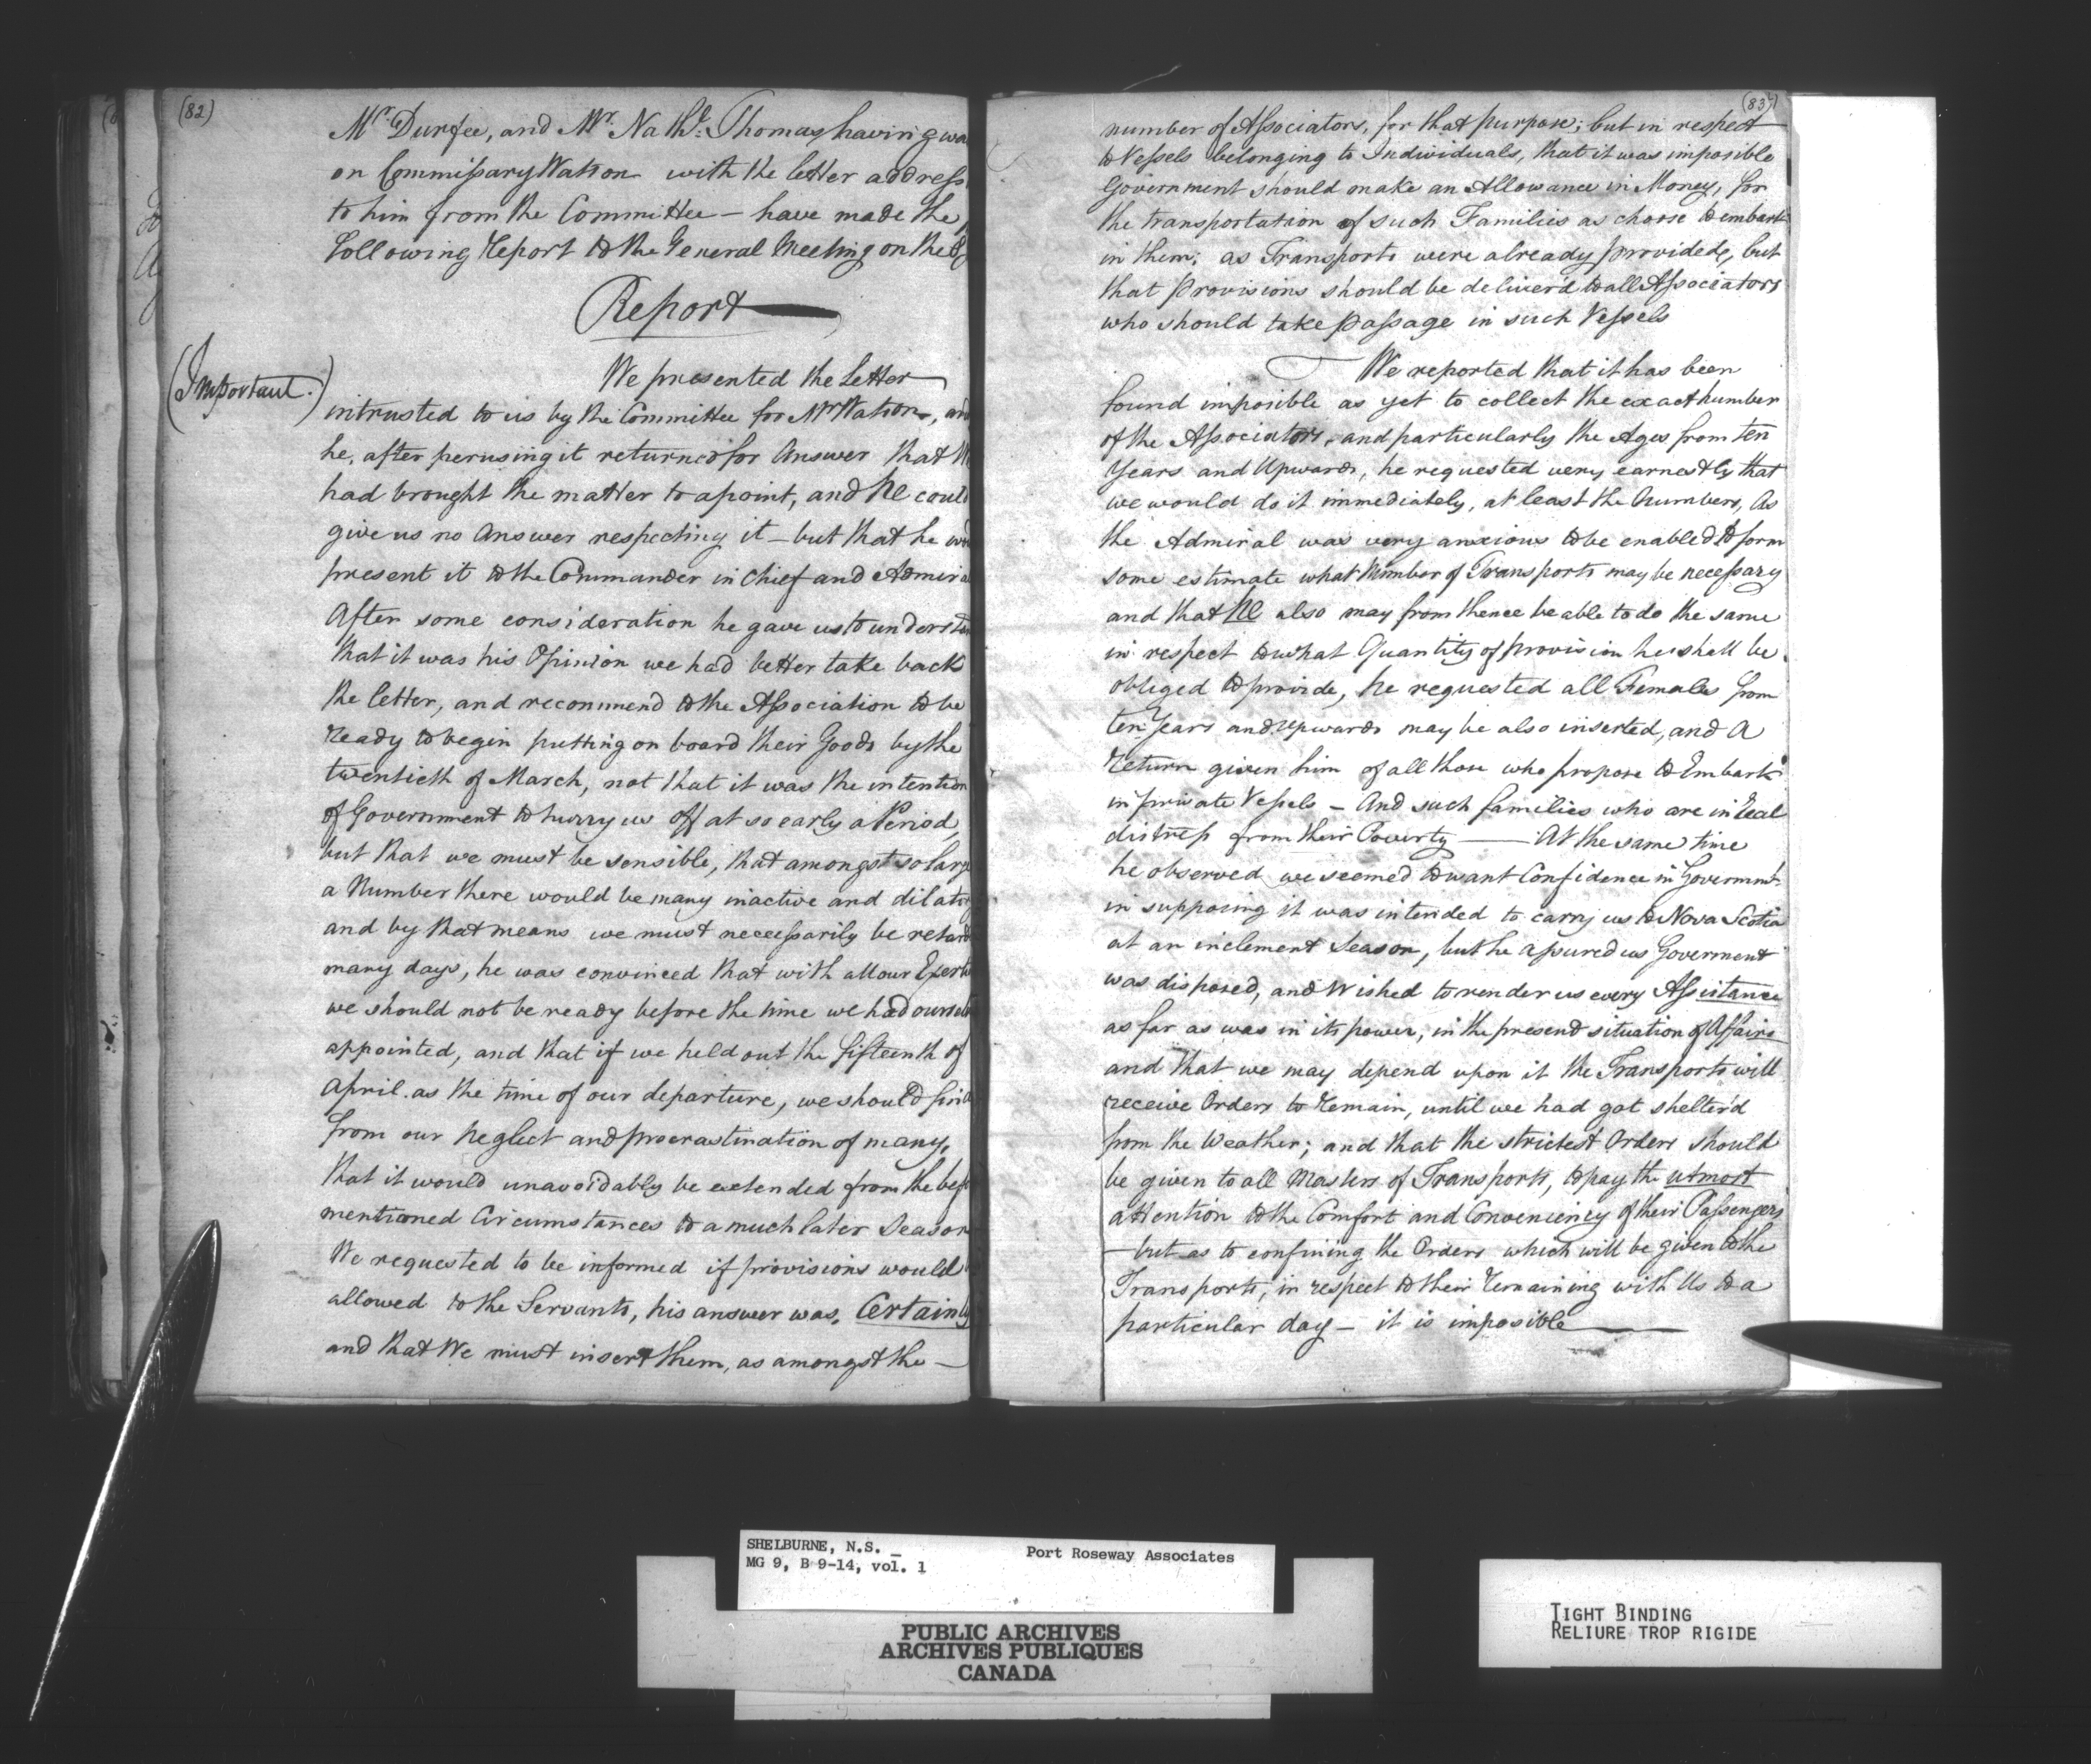 (82)
Mr. Durfee, and Mr. Nathl. Thomas having wa
on Commissary Watson with the letter address
to him from the Committee — have made the
following Report to the General Meeting on the
Report
(Important.)
We presented the Letter
intrusted to us by the Committee for Mr Watson, and
he, after perusing it returned for Answer that We
had brought the matter to a point, and He could
give us no Answer respecting it — but that he wou
present it to the Commander in Chief and Admira
After some consideration he gave us to understan
that it was his Opinion we had better take back
the letter, and recommend to the Association to be
ready to begin putting on board their Goods by the
twentieth of March, not that it was the intention
of Government to hurry us off at so early a Period,
but that we must be sensible, that amongst so large
a Number there would be many inactive and dilato
and by that means we must necessarily be retard
many days, he was convinced that with all our Exert
we should not be ready before the time we had ourselv
appointed, and that if we held out the fifteenth of
April as the time of our departure, we should find
from our neglect and procrastination of many,
that it would unavoidably be extended from the bef
mentioned Circumstances to a much later Season
We requested to be informed if provisions would
allowed to the Servants, his answer was, Certainly
and that We must insert them, as amongst the —
(83)
number of Associators, for that purpose; but in respect
to Vessels belonging to Individuals, that it was imposible
Government should make an Allowance in Money, for
the transportation of such Families as choose to embark
in them; as Transports were already provided, but
that Provisions should be deliver'd to all Associators
who should take passage in such Vessels
We reported that it has been
found imposible as yet to collect the exact number
of the Associators, and particularly the Ages from ten
Years and Upwards, he requested very earnestly that
we would do it immediately, at least the Numbers, As
the Admiral was very anxious to be enabled to form
some estimate what Number of Transports may be necessary
and that He also may from thence be able to do the same
in respect to what Quantity of provision he shall be
obliged to provide, he requested all Females from
ten Years and upwards may be also inserted, and a
Return given him of all those who propose to Embark
in private Vessels — And such families who are in Real
distress from their Poverty — At the same time
he observed we seemed to want Confidence in Governmt.
in supposing it was intended to carry us to Nova Scotia
at an inclement Season, but he assured us Goverment
was disposed, and wished to render us every Assistance
as far as was in its power, in the present situation of Affairs
and that we may depend upon it the Transports will
receive Orders to Remain, until we had got shelter'd
from the Weather; and that the strictest Orders should
be given to all Masters of Transports, to pay the utmost
attention to the Comfort and Conveniency of their Passengers
— but as to confining the Orders which will be given to the
Transports, in respect to their remaining with Us to a
particular day — it is imposible
SHELBURNE, N.S. —
MG 9, B 9-14, vol. 1
Port Roseway Associates
PUBLIC ARCHIVES
ARCHIVES PUBLIQUES
CANADA
TIGHT BINDING
RELIURE TROP RIGIDE